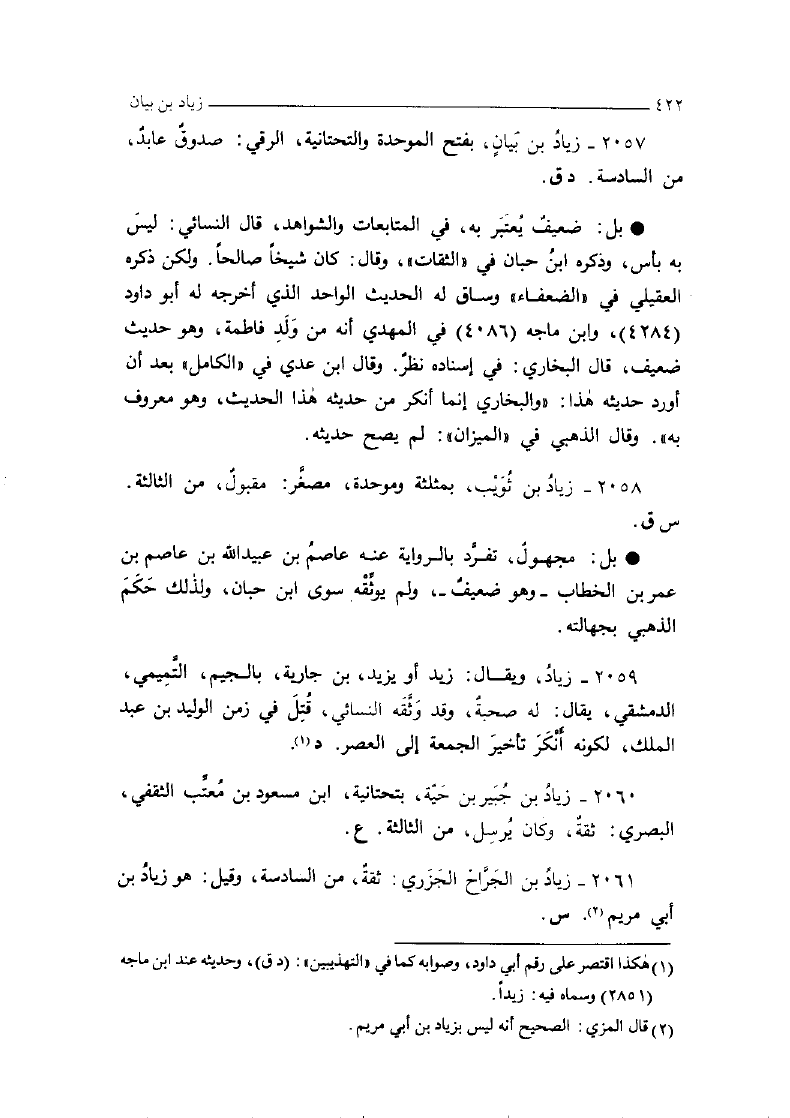 ٤٢٢ ــــــ زياد بن بيان
٢٠٥٧ ـ زيادُ بن بَيانٍ، بفتح الموحدة والتحتانية، الرقي: صدوقٌ عابدٌ،
من السادسة. د ق.
● بل: ضعيفٌ يُعتَبَر به، في المتابعات والشواهد، قال النسائي: ليسَ
به بأس، وذكره ابنُ حبان في «الثقات»، وقال: كان شيخاً صالحاً. ولكن ذكره
العقيلي في «الضعفاء» وساق له الحديث الواحد الذي أخرجه له أبو داود
(٤٢٨٤)، وابن ماجه (٤٠٨٦) في المهدي أنه من وَلَدِ فاطمة، وهو حديث
ضعيف، قال البخاري: في إسناده نظرٌ. وقال ابن عدي في «الكامل» بعد أن
أورد حديثه هٰذا: «والبخاري إنما أنكر من حديثه هٰذا الحديث، وهو معروف
به». وقال الذهبي في «الميزان»: لم يصح حديثه.
٢٠٥٨ ـ زيادُ بن ثُوَيْب، بمثلثة وموحدة، مصغَّر: مقبولٌ، من الثالثة.
س ق.
● بل: مجهولٌ، تفرَّد بالرواية عنه عاصمُ بن عبيدالله بن عاصم بن
عمر بن الخطاب ـ وهو ضعيفٌ ـ، ولم يوثِّقْه سوى ابن حبان، ولذٰلك حَكَمَ
الذهبي بجهالته.
٢٠٥٩ ـ زيادُ، ويقال: زيد أو يزيد، بن جارية، بالجيم، التَّمِيمي،
الدمشقي، يقال: له صحبةٌ، وقد وَثَّقَه النسائي، قُتِلَ في زمن الوليد بن عبد
الملك، لكونه أَنْكَرَ تأخيرَ الجمعة إلى العصر. د(١).
٢٠٦٠ ـ زيادُ بن جُبَير بن حَيّة، بتحتانية، ابن مسعود بن مُعتِّب الثقفي،
البصري: ثقةٌ، وكان يُرسِل، من الثالثة. ع.
٢٠٦١ ـ زيادُ بن الجَرَّاح الجَزَري: ثقةٌ، من السادسة، وقيل: هو زيادُ بن
أبي مريم(٢). س.
(١) هٰكذا اقتصر على رقم أبي داود، وصوابه كما في «التهذيبين»: (د ق)، وحديثه عند ابن ماجه
(٢٨٥١) وسماه فيه: زيداً.
(٢) قال المزي: الصحيح أنه ليس بزياد بن أبي مريم.